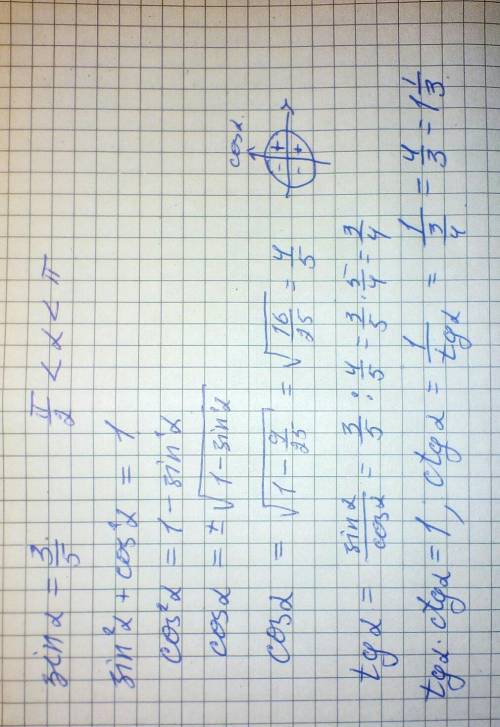 sin α = 3/5    π/2 < α < π
sin²α + cos²α = 1
cos²α = 1 - sin²α
cos α = ±√(1 - sin²α)
cos α = √(1 - 9/25) = √(16/25) = 4/5
cos α
- +
- +
tg α = sin α/cos α = 3/5 : 4/5 = 3/5 · 5/4 = 3/4
tg α · ctg α = 1, ctg α = 1/tg α = 1/(3/4) = 4/3 = 1 1/3